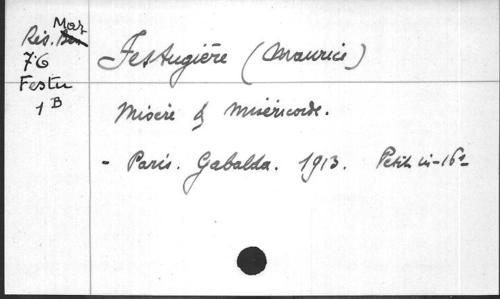 Mar
Rés.
76
Festu
1 B
Festugière (Maurice)
Misère & Miséricorde.
- Paris. Gabalda. 1913. Petit in-16º